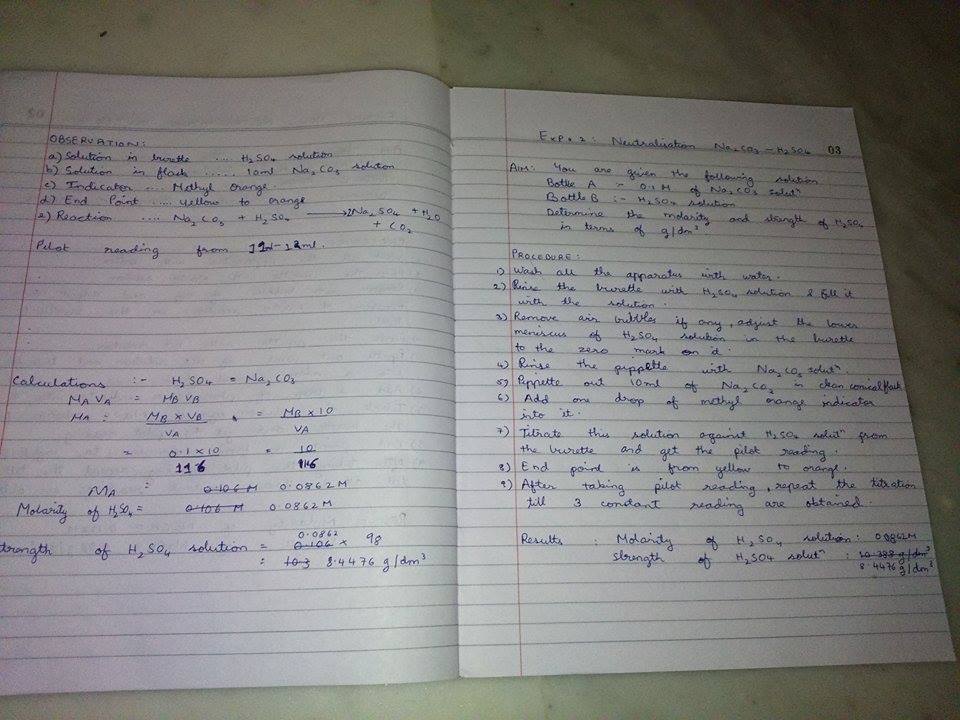 OBSERVATION:
a) Solution in burette .... H₂SO₄ solution
b) Solution in flask ..... 10ml Na₂CO₃ solution
c) Indicator .... Methyl Orange
d) End Point .... Yellow to orange
e) Reaction .... Na₂CO₃ + H₂SO₄ → Na₂SO₄ + H₂O
+ CO₂
Pilot reading from 11ml-12ml.
Calculations :- H₂SO₄ = Na₂CO₃
MA VA = MB VB
MA = MB × VB / VA = MB × 10 / VA
= 0.1 × 10 / 11.6 = 10 / 116
MA = 0.106 M 0.0862 M
Molarity of H₂SO₄ = 0.106 M 0.0862 M
0.0862
trength of H₂SO₄ solution = 0.106 × 98
= 10.3 8.4476 g/dm³
Exp. 2 : Neutralisation Na₂CO₃ - H₂SO₄ 03
AIM: You are given the following solution
Bottle A :- 0.1 M of Na₂CO₃ solutⁿ
Bottle B :- H₂SO₄ solution
Determine the molarity and strength of H₂SO₄
in terms of g/dm³
PROCEDURE:
1) Wash all the apparatus with water.
2) Rinse the burette with H₂SO₄ solution & fill it
with the solution.
3) Remove air bubbles if any, adjust the lower
meniscus of H₂SO₄ solution in the burette
to the zero mark on
4) Rinse the pippette with Na₂CO₃ solutⁿ.
5) Pippette out 10ml of Na₂CO₃ in clean conical flask
6) Add one drop of methyl orange indicator
into it.
7) Titrate this solution against H₂SO₄ solutⁿ from
the burette and get the pilot reading.
8) End point is from yellow to orange.
9) After taking pilot reading, repeat the titration
till 3 constant reading are obtained.
Results : Molarity of H₂SO₄ solution : 0.0862M
strength of H₂SO4 solutⁿ : 10.388 g/dm³
8.4476 g/dm³